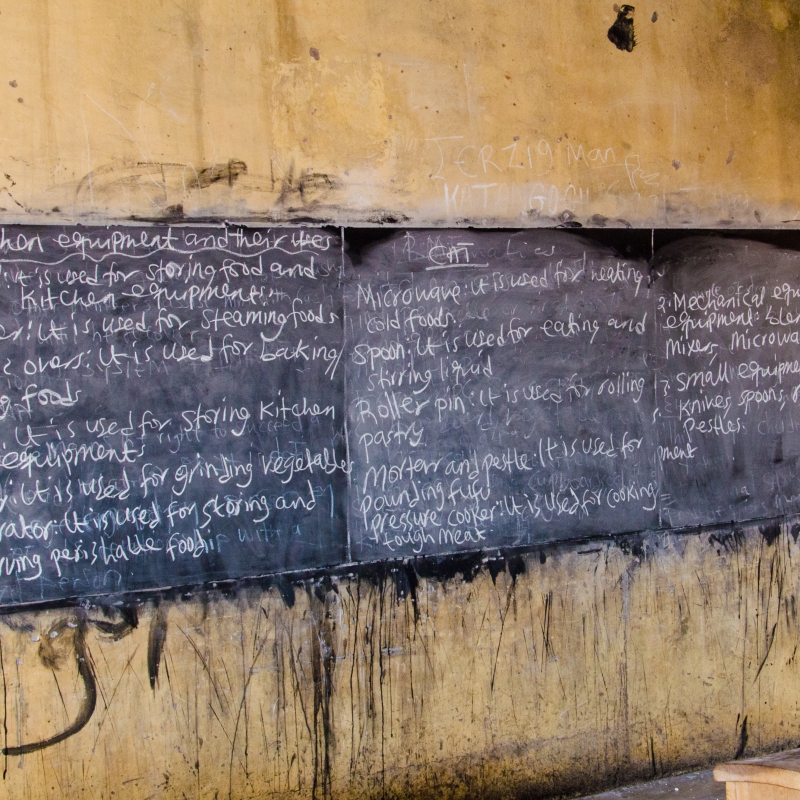 TERZIG Man
KIT
hon equipment and their uses
: it is used for storing food and
Kitchen equipments.
er: it is used for steaming foods
c ovens: it is used for backing
g foods
it is used for storing kitchen
equipments
y: it is used for grinding vegetables
rator: it is used for storing and
rving perishable food
Cm
Microwave: it is used for heating
cold foods.
Spoon: it is used for eating and
stirring liquid
Roller pin: It is used for rolling
pastry
Morterr and pestle: It is used for
pounding fufu
pressure cooker: It is used for cooking
tough meat.
2: Mechanical equ
equipment: blen
mixers, Microwa
3: Small equipme
Knives, spoons,
Pestles.
pment